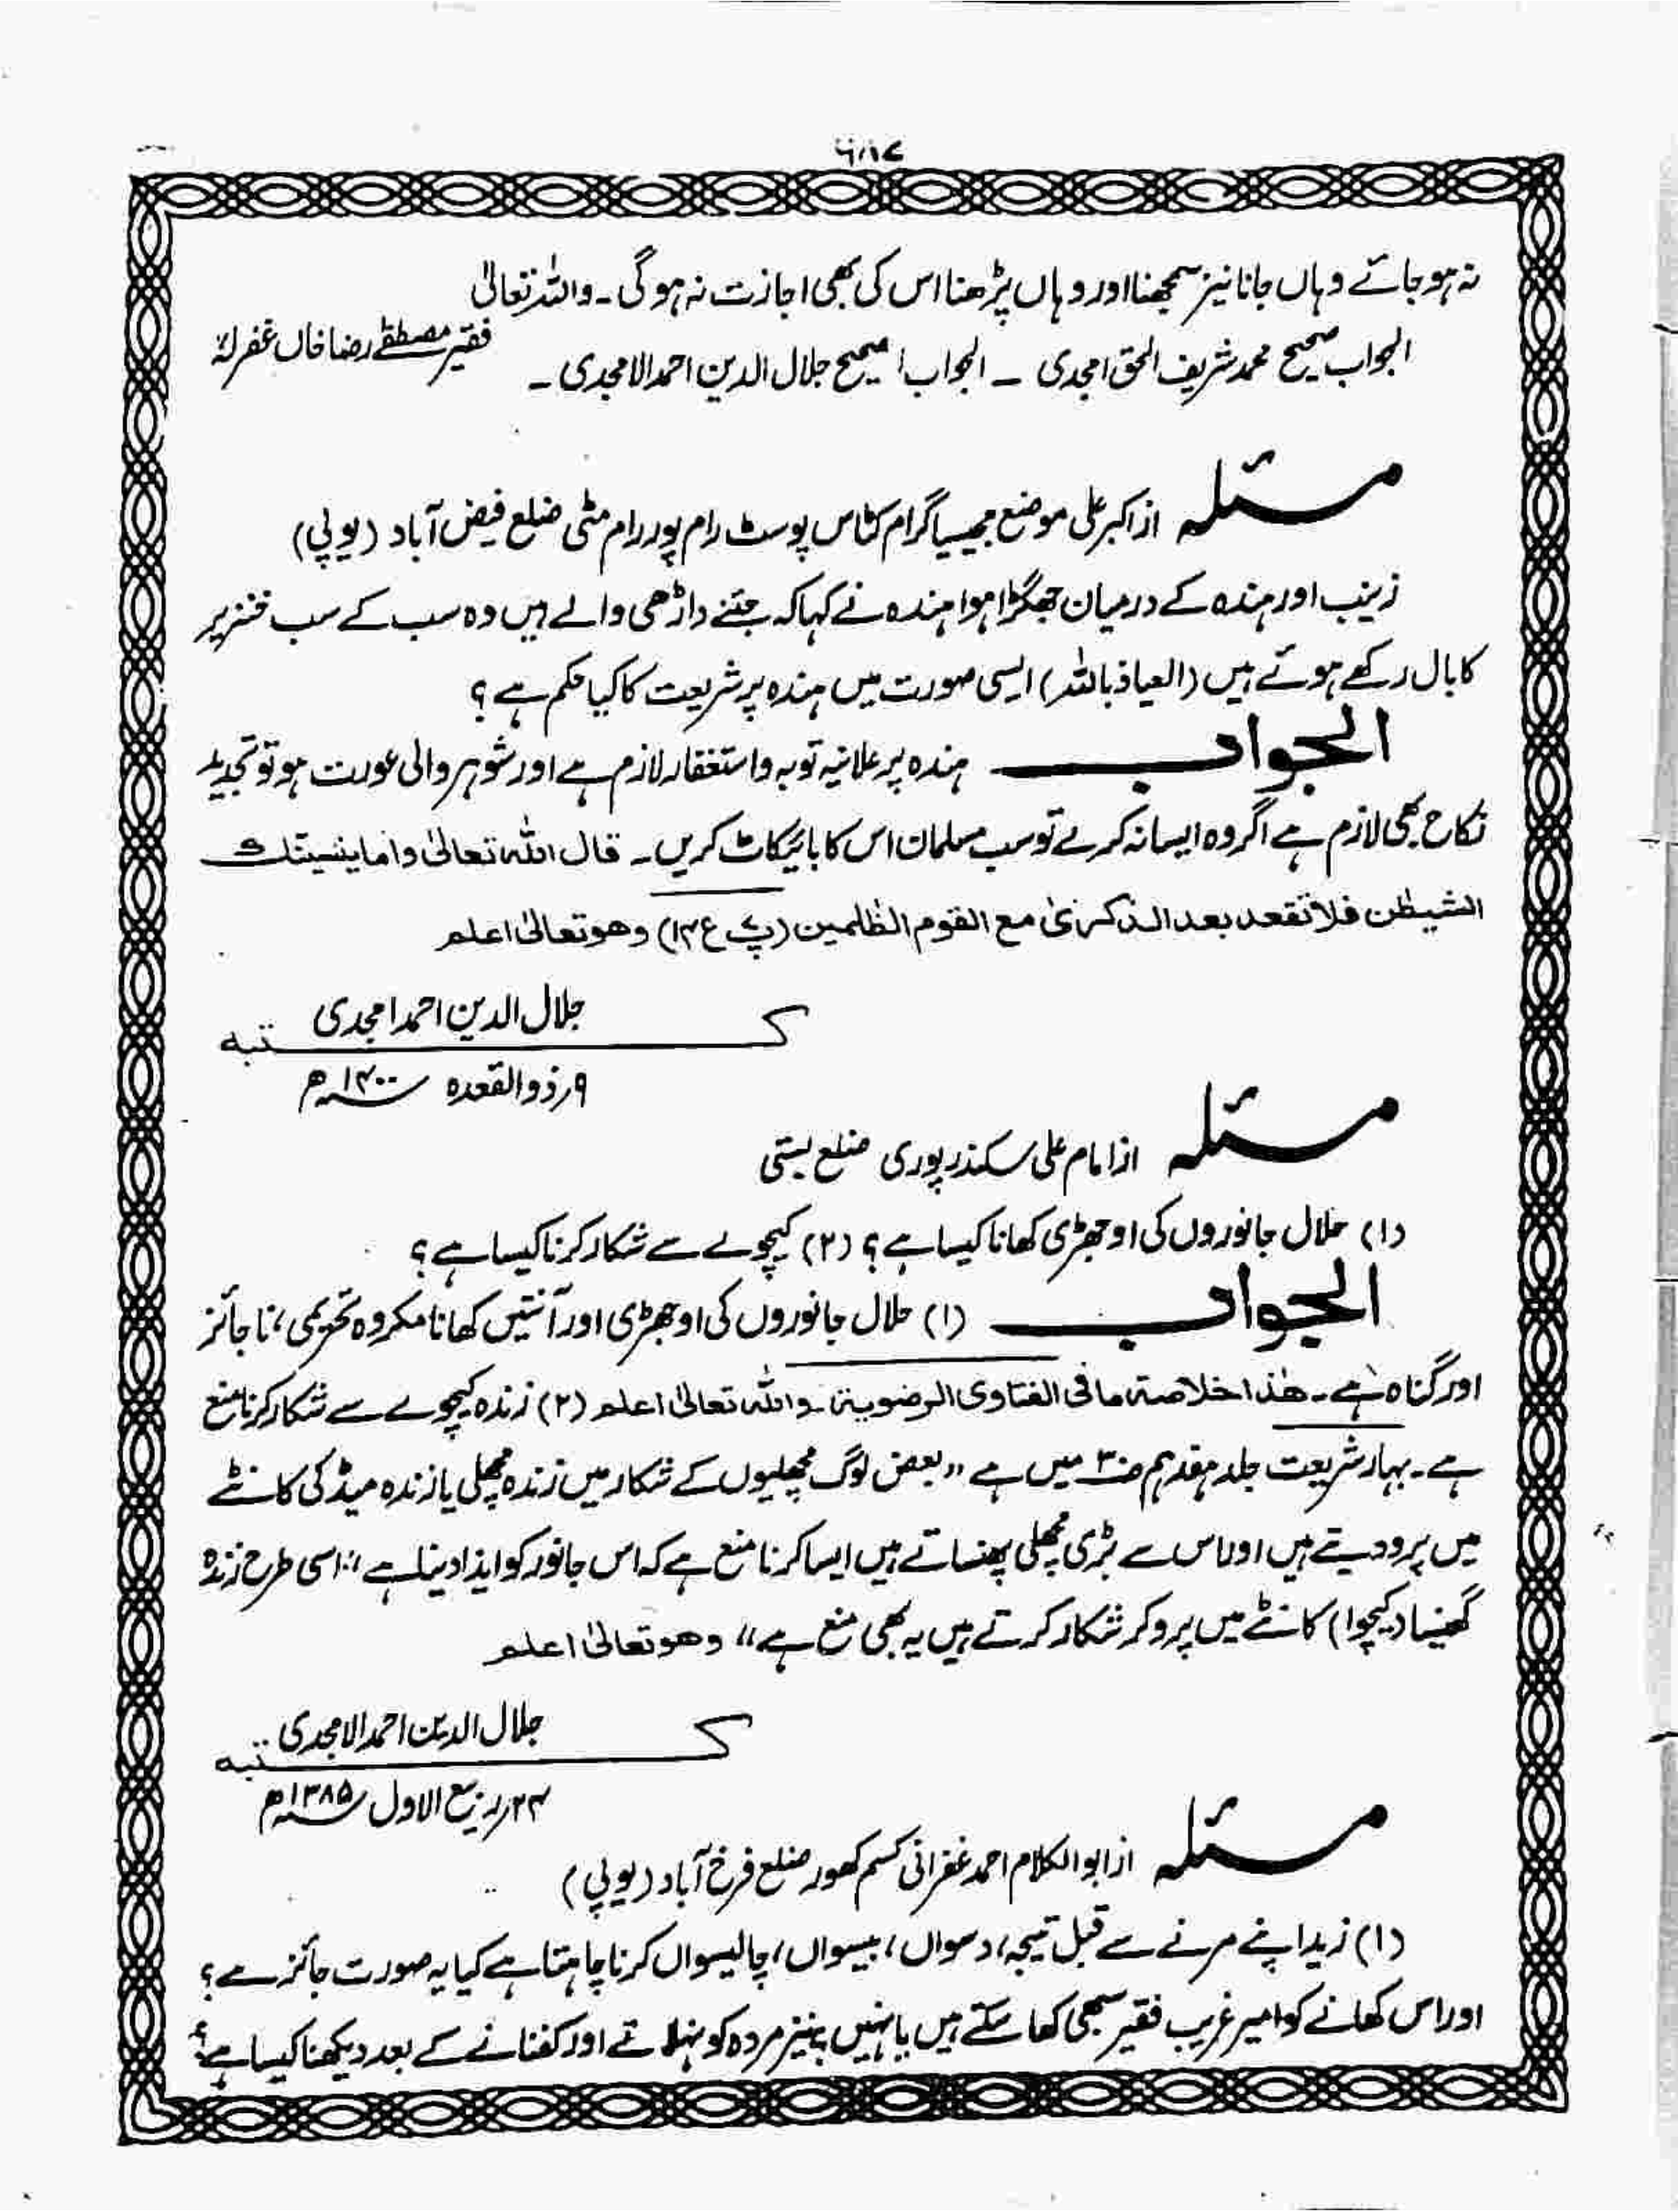 نہ ہو جائے وہاں جانا نیز سمجھنا اور وہاں پڑھنا اس کی بھی اجازت نہ ہوگی۔ واللہ تعالیٰ
فقیر مصطفےٰ رضا خاں غفرلہٗ
الجواب صحیح محمد شریف الحق امجدی ۔ الجواب صحیح جلال الدین احمد الامجدی ۔
مسئلہ از اکبر علی موضع گرام کٹاس پوسٹ رام پور رام مٹی ضلع فیض آباد (یوپی)
زینب اور ہندہ کے درمیان جھگڑا ہوا ہندہ نے کہا کہ جتنے داڑھی والے ہیں وہ سب کے سب خنزیر
کا بال رکھے ہوئے ہیں (العیاذ باللہ) ایسی صورت میں ہندہ پر شریعت کا کیا حکم ہے؟
الجواب ہندہ پر علانیہ توبہ و استغفار لازم ہے اور شوہر والی عورت ہو تو تجدید
نکاح بھی لازم ہے اگر وہ ایسا نہ کرے تو سب مسلمان اس کا بائیکاٹ کریں۔ قال اللہ تعالیٰ واما ینسینک
الشیطٰن فلا تقعد بعد الذکریٰ مع القوم الظٰلمین (پ۷ ع۱۴) وھو تعالیٰ اعلم
جلال الدین احمد امجدی
کتبہ
۹؍ ذوالقعدہ ۱۴۰۰ھ
مسئلہ از امام علی سکندر پوری ضلع بستی
(۱) حلال جانوروں کی اوجھڑی کھانا کیسا ہے؟ (۲) کیچوے سے شکار کرنا کیسا ہے؟
الجواب (۱) حلال جانوروں کی اوجھڑی اور آنتیں کھانا مکروہ تحریمی، ناجائز
اور گناہ ہے۔ ھٰذا خلاصۃ ما فی الفتاوی الرضویۃ۔ واللہ تعالیٰ اعلم (۲) زندہ کیچوے سے شکار کرنا منع
ہے۔ بہار شریعت جلد ہفدہم میں ہے "بعض لوگ مچھلیوں کے شکار میں زندہ مچھلی یا زندہ مینڈکی کانٹے
میں پرو دیتے ہیں اور اس سے بڑی مچھلی پھنساتے ہیں ایسا کرنا منع ہے کہ اس جانور کو ایذا دینا ہے" اسی طرح زندہ
گھنیسا (کیچوا) کانٹے میں پرو کر شکار کرتے ہیں یہ بھی منع ہے" وھو تعالیٰ اعلم
جلال الدین احمد الامجدی
کتبہ
۲۴؍ ربیع الاول ۱۳۸۵ھ
مسئلہ از ابوالکلام احمد غفرانی کسم کھور ضلع فرخ آباد (یوپی)
(۱) زید اپنے مرنے سے قبل تیجہ، دسواں، بیسواں، چالیسواں کرنا چاہتا ہے کیا یہ صورت جائز ہے؟
اور اس کھانے کو امیر غریب فقیر سبھی کھا سکتے ہیں یا نہیں؟ نیز مردہ کو نہلاتے اور کفنانے کے بعد دیکھنا کیسا ہے؟